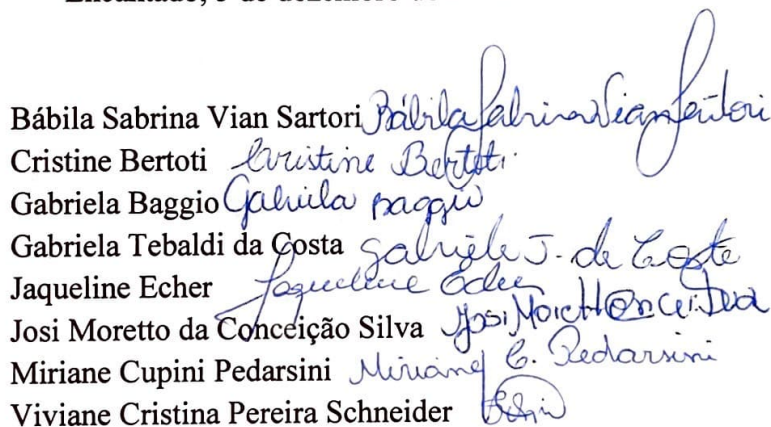 Bábila Sabrina Vian Sartori Bábila Sabrina Vian Sartori
Cristine Bertoti Cristine Bertoti
Gabriela Baggio Gabriela Baggio
Gabriela Tebaldi da Costa Gabriele T. da Costa
Jaqueline Echer Jaqueline Echer
Josi Moretto da Conceição Silva Josi Morett
Miriane Cupini Pedarsini Miriane C. Pedarsini
Viviane Cristina Pereira Schneider